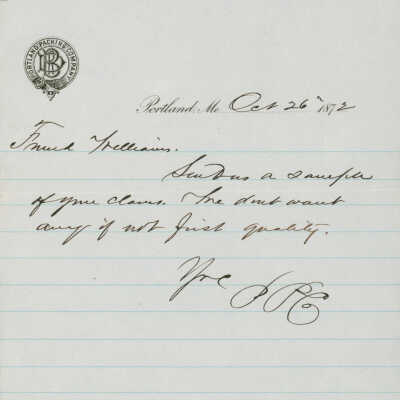 PORTLAND PACKING COMPANY
Portland, Me Oct 26" 1872
Friend Williams.
Send us a sample
of your clams. We dont want
any if not first quality.
Yrs P P Co